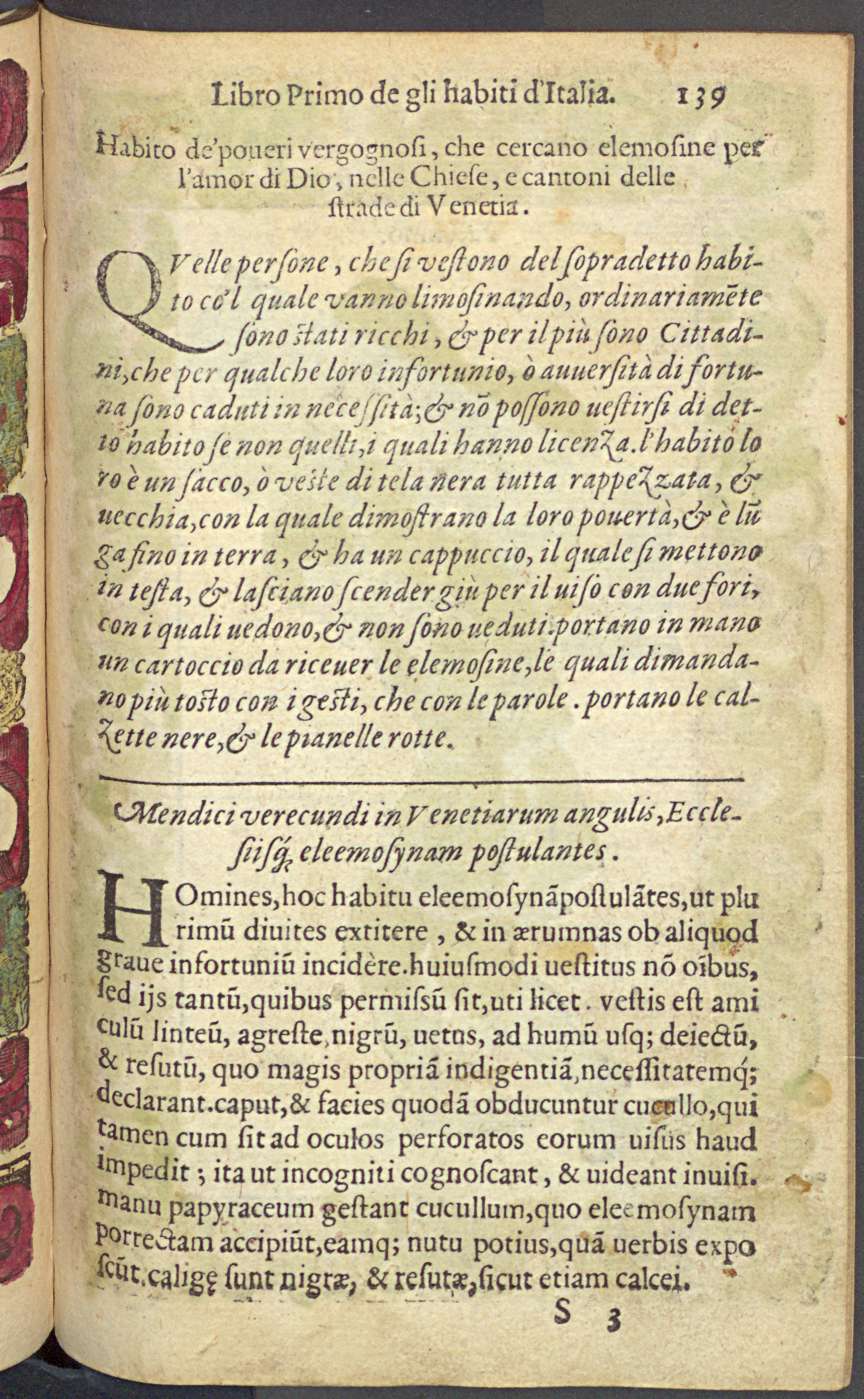 Libro Primo de gli habiti d'Italia. 139
Habito de'poueri vergognosi, che cercano elemosine per
l'amor di Dio, nelle Chiese, e cantoni delle
strade di Venetia.
QVelle persone, che si vestono del sopradetto habi-
to co'l quale vanno limosinando, ordinariamēte
sono stati ricchi, & per il più sono Cittadi-
ni, che per qualche loro infortunio, ò auuersità di fortu-
na sono caduti in necessità; & nō possono uestirsi di det-
to habito se non quelli, i quali hanno licenza. l'habito lo
ro è un sacco, ò veste di tela nera tutta rappezzata, &
uecchia, con la quale dimostrano la loro pouertà, & è lū
ga sino in terra, & ha un cappuccio, il quale si mettono
in testa, & lasciano scender giù per il uiso con due fori,
con i quali uedono, & non sono ueduti. portano in mano
un cartoccio da riceuer le elemosine, le quali dimanda-
no più tosto con i gesti, che con le parole. portano le cal-
zette nere, & le pianelle rotte.
Mendici verecundi in Venetiarum angulis, Eccle-
siisq́; eleemosynam postulantes.
HOmines, hoc habitu eleemosynā postulātes, ut plu
rimū diuites extitere, & in ærumnas ob aliquod
graue infortuniū incidère. huiusmodi uestitus nō oībus,
sed ijs tantū, quibus permissū sit, uti licet. vestis est ami
culū linteū, agreste, nigrū, uetus, ad humū usq; deiectū,
& resutū, quo magis propriā indigentiā, necessitatemq́;
declarant. caput, & facies quodā obducuntur cucullo, qui
tamen cum sit ad oculos perforatos eorum uisus haud
impedit; ita ut incogniti cognoscant, & uideant inuisi.
manu papyraceum gestant cucullum, quo eleemosynam
porrectam accipiūt, eamq; nutu potius, quā uerbis expo
scūt. caligę sunt nigræ, & resutæ, sicut etiam calcei.
S 3